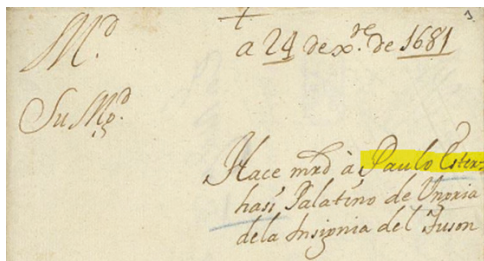 M.d
a 24 de x.re de 1681
Su Mg.d
Hace mrd à Paulo Ester=
hasi Palatino de Vngria
dela Insignia del Tuson